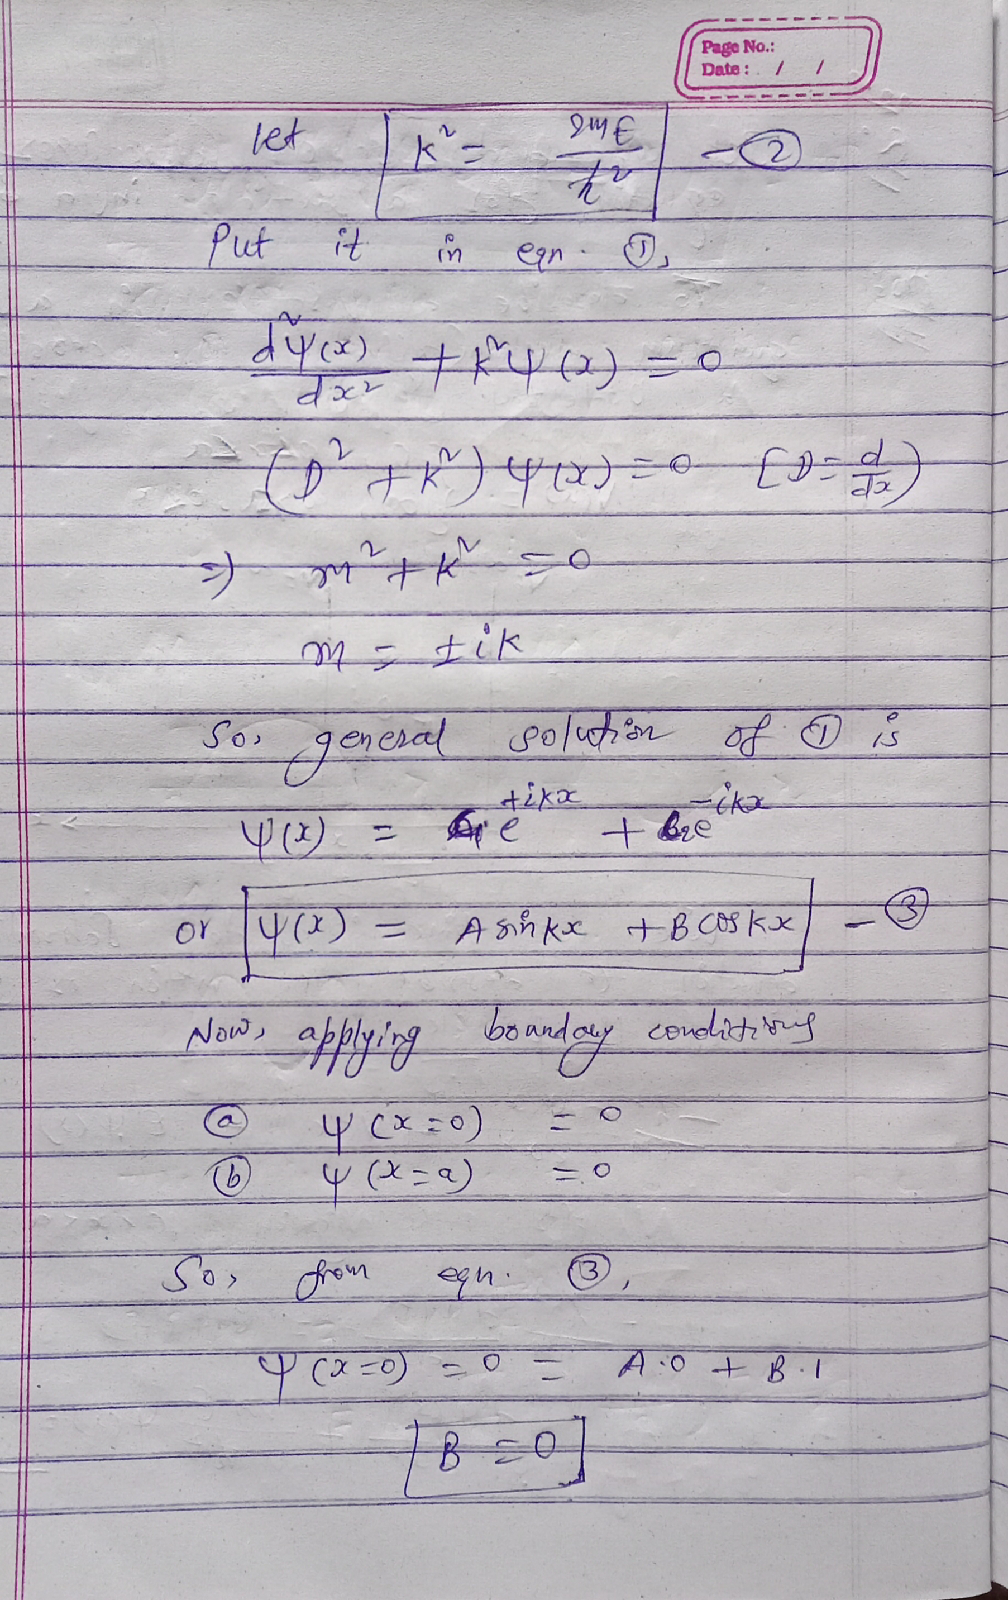 Page No.:
Date : / /
let k² = 2mE/ħ² - ②
Put it in eqn. ①,
d²ψ(x)/dx² + k²ψ(x) = 0
(D² + k²) ψ(x) = 0 [D = d/dx)
⇒) m² + k² = 0
m = ±ik
So, general solution of ① is
ψ(x) = e^{+ikx} + e^{-ikx}
or ψ(x) = A sin kx + B cos kx - ③
Now, applying boundary conditions
ⓐ ψ(x=0) = 0
ⓑ ψ(x=a) = 0
So, from eqn. ③,
ψ(x=0) = 0 = A·0 + B·1
B = 0